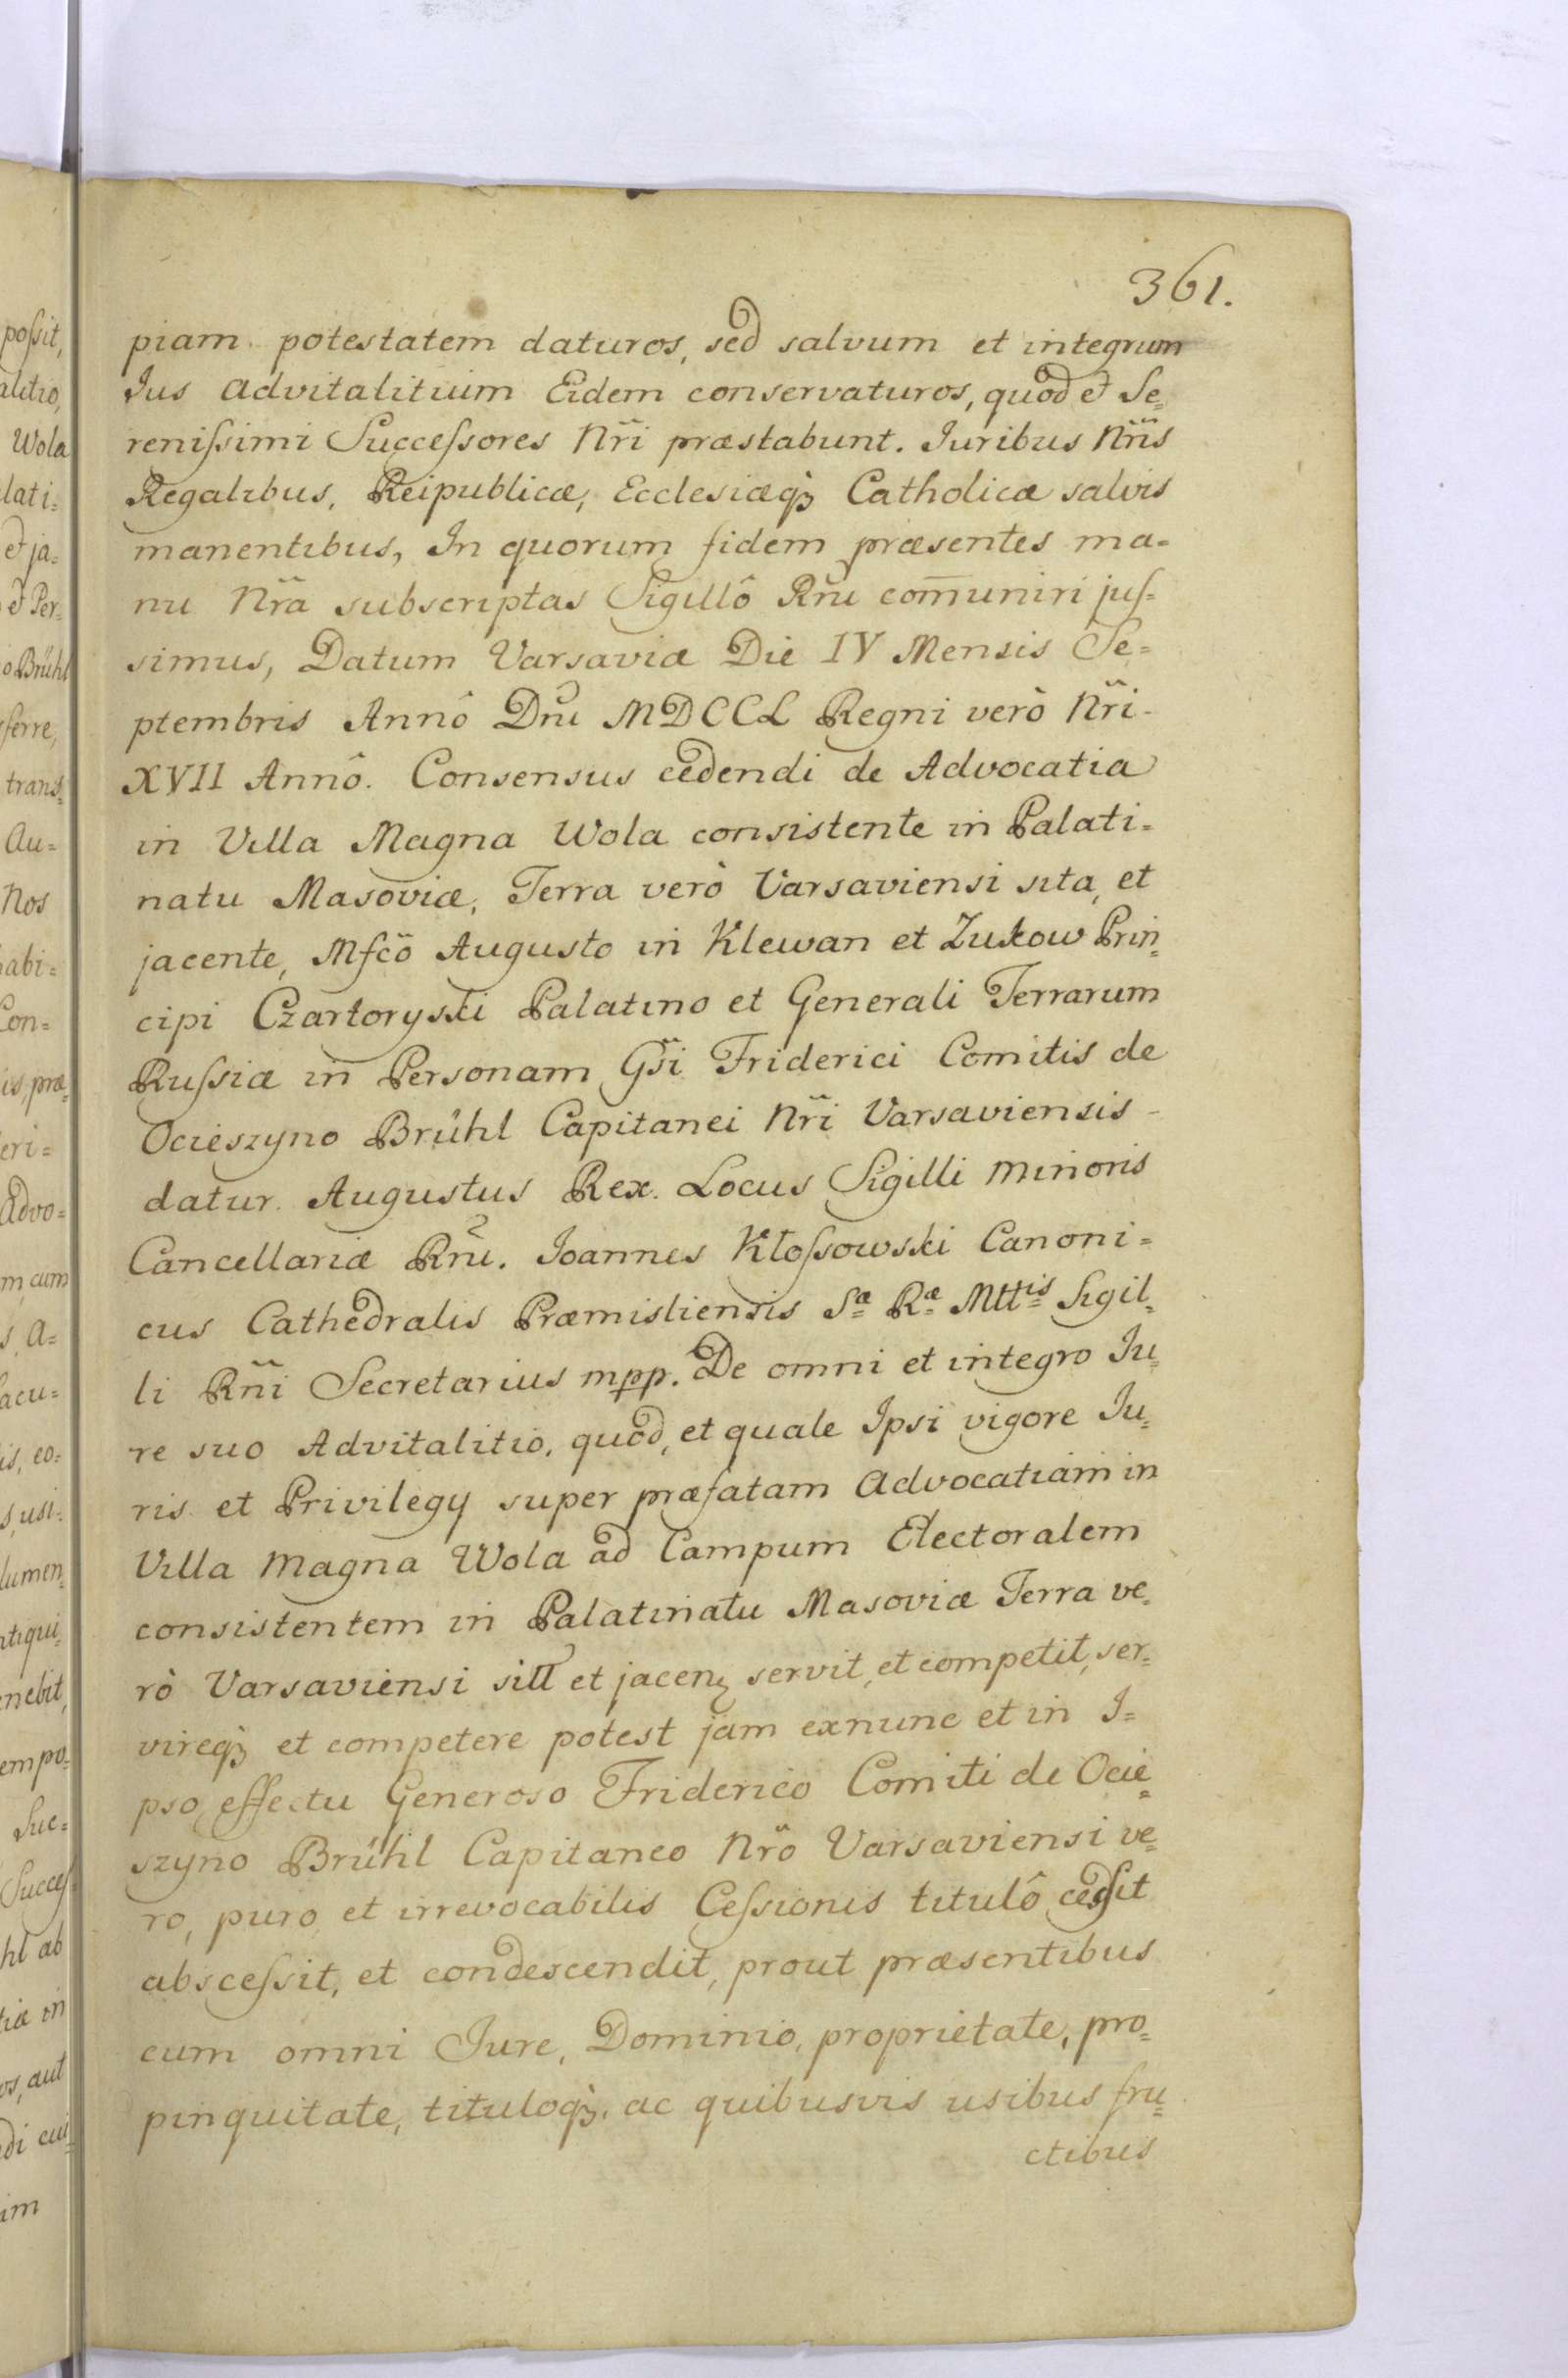 361.
piam potestatem daturos, sed salvum et integrum
Jus advitalitium Eidem conservaturos, quod et Se=
renißimi Succeßores Nr̃i præstabunt. Juribus Nr̃is
Regalibus, Reipublicæ, Ecclesiæq̀₃ Catholicæ salvis
manentibus, In quorum fidem præsentes ma=
nu Nr̃a subscriptas Sigillô Rñi com̃uniri juſ=
simus, Datum Varsaviæ Die IV Mensis Se=
ptembris Annô Dñi MDCCL Regni verò Nr̃i -
XVII Annô. Consensus cedendi de Advocatia
in Villa Magna Wola consistente in Palati=
natu Masoviæ, Terra verò Varsaviensi sita, et
jacente, Mfcõ Augusto in Klewan et Zukow Prin=
cipi Czartoryski Palatino et Generali Terrarum
Rußiæ in Personam Gs̃i Friderici Comitis de
Ocieszyno Brühl Capitanei Nr̃i Varsaviensis -
datur. Augustus Rex. Locus Sigilli minoris
Cancellariæ Rñi. Joannes Kłoßowski Canoni=
cus Cathedralis Præmisliensis Sæ Ræ Mttis Sigil=
li Rñi Secretarius mpp. De omni et integro Ju=
re suo Advitalitio, quod, et quale Ipsi vigore Ju=
ris et Privilegy super præfatam Advocatiam in
Villa Magna Wola ad Campum Electoralem
consistentem in Palatinatu Masoviæ Terra ve=
rò Varsaviensi sitt et jacen₃ servit, et competit, ser=
vireq̀₃ et competere potest jam exnunc et in I=
pso effectu Generoso Friderico Comiti de Ocie=
szyno Brühl Capitaneo Nr̃o Varsaviensi ve=
ro, puro et irrevocabilis Ceßionis titulô ceßit
absceßit, et condescendit, prout præsentibus
cum omni Jure, Dominio, proprietate, pro=
pinquitate, tituloq̀₃, ac quibusvis usibus fru=
ctibus
poßit,
alitio,
Wola
lati=
et ja=
et Per=
o Brühl
sferre,
trans=
Au=
Nos
habi=
Con=
is, præ=
eri=
Advo=
m, cum
s, A=
facu=
is, eo=
s, usi=
lumen=
ntiqui=
enebit,
empo=
Suc=
Succeſ=
hl ab
tiæ in
os, aut
di cui=
im